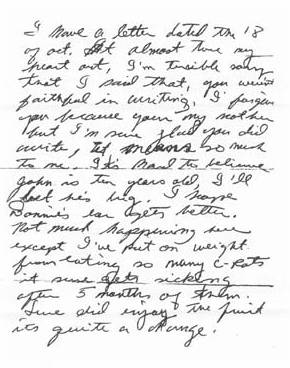 I have a letter dated the 18
of oct. It almost tore my
heart out, I'm terrible sorry
that I said that, you weren't
faithful in writing. I forgive
you because your my mother
but I'm sure glad you did
write, it means so much
to me. It's hard to believe
John is ten years old, I'll
bet he's big. I hope
Donnie's ear gets better.
Not much happening here
except I've put on weight
from eating so many C-Rats
it sure gets sickening
after 5 months of them.
Sure did enjoy the fruit
its quite a change!